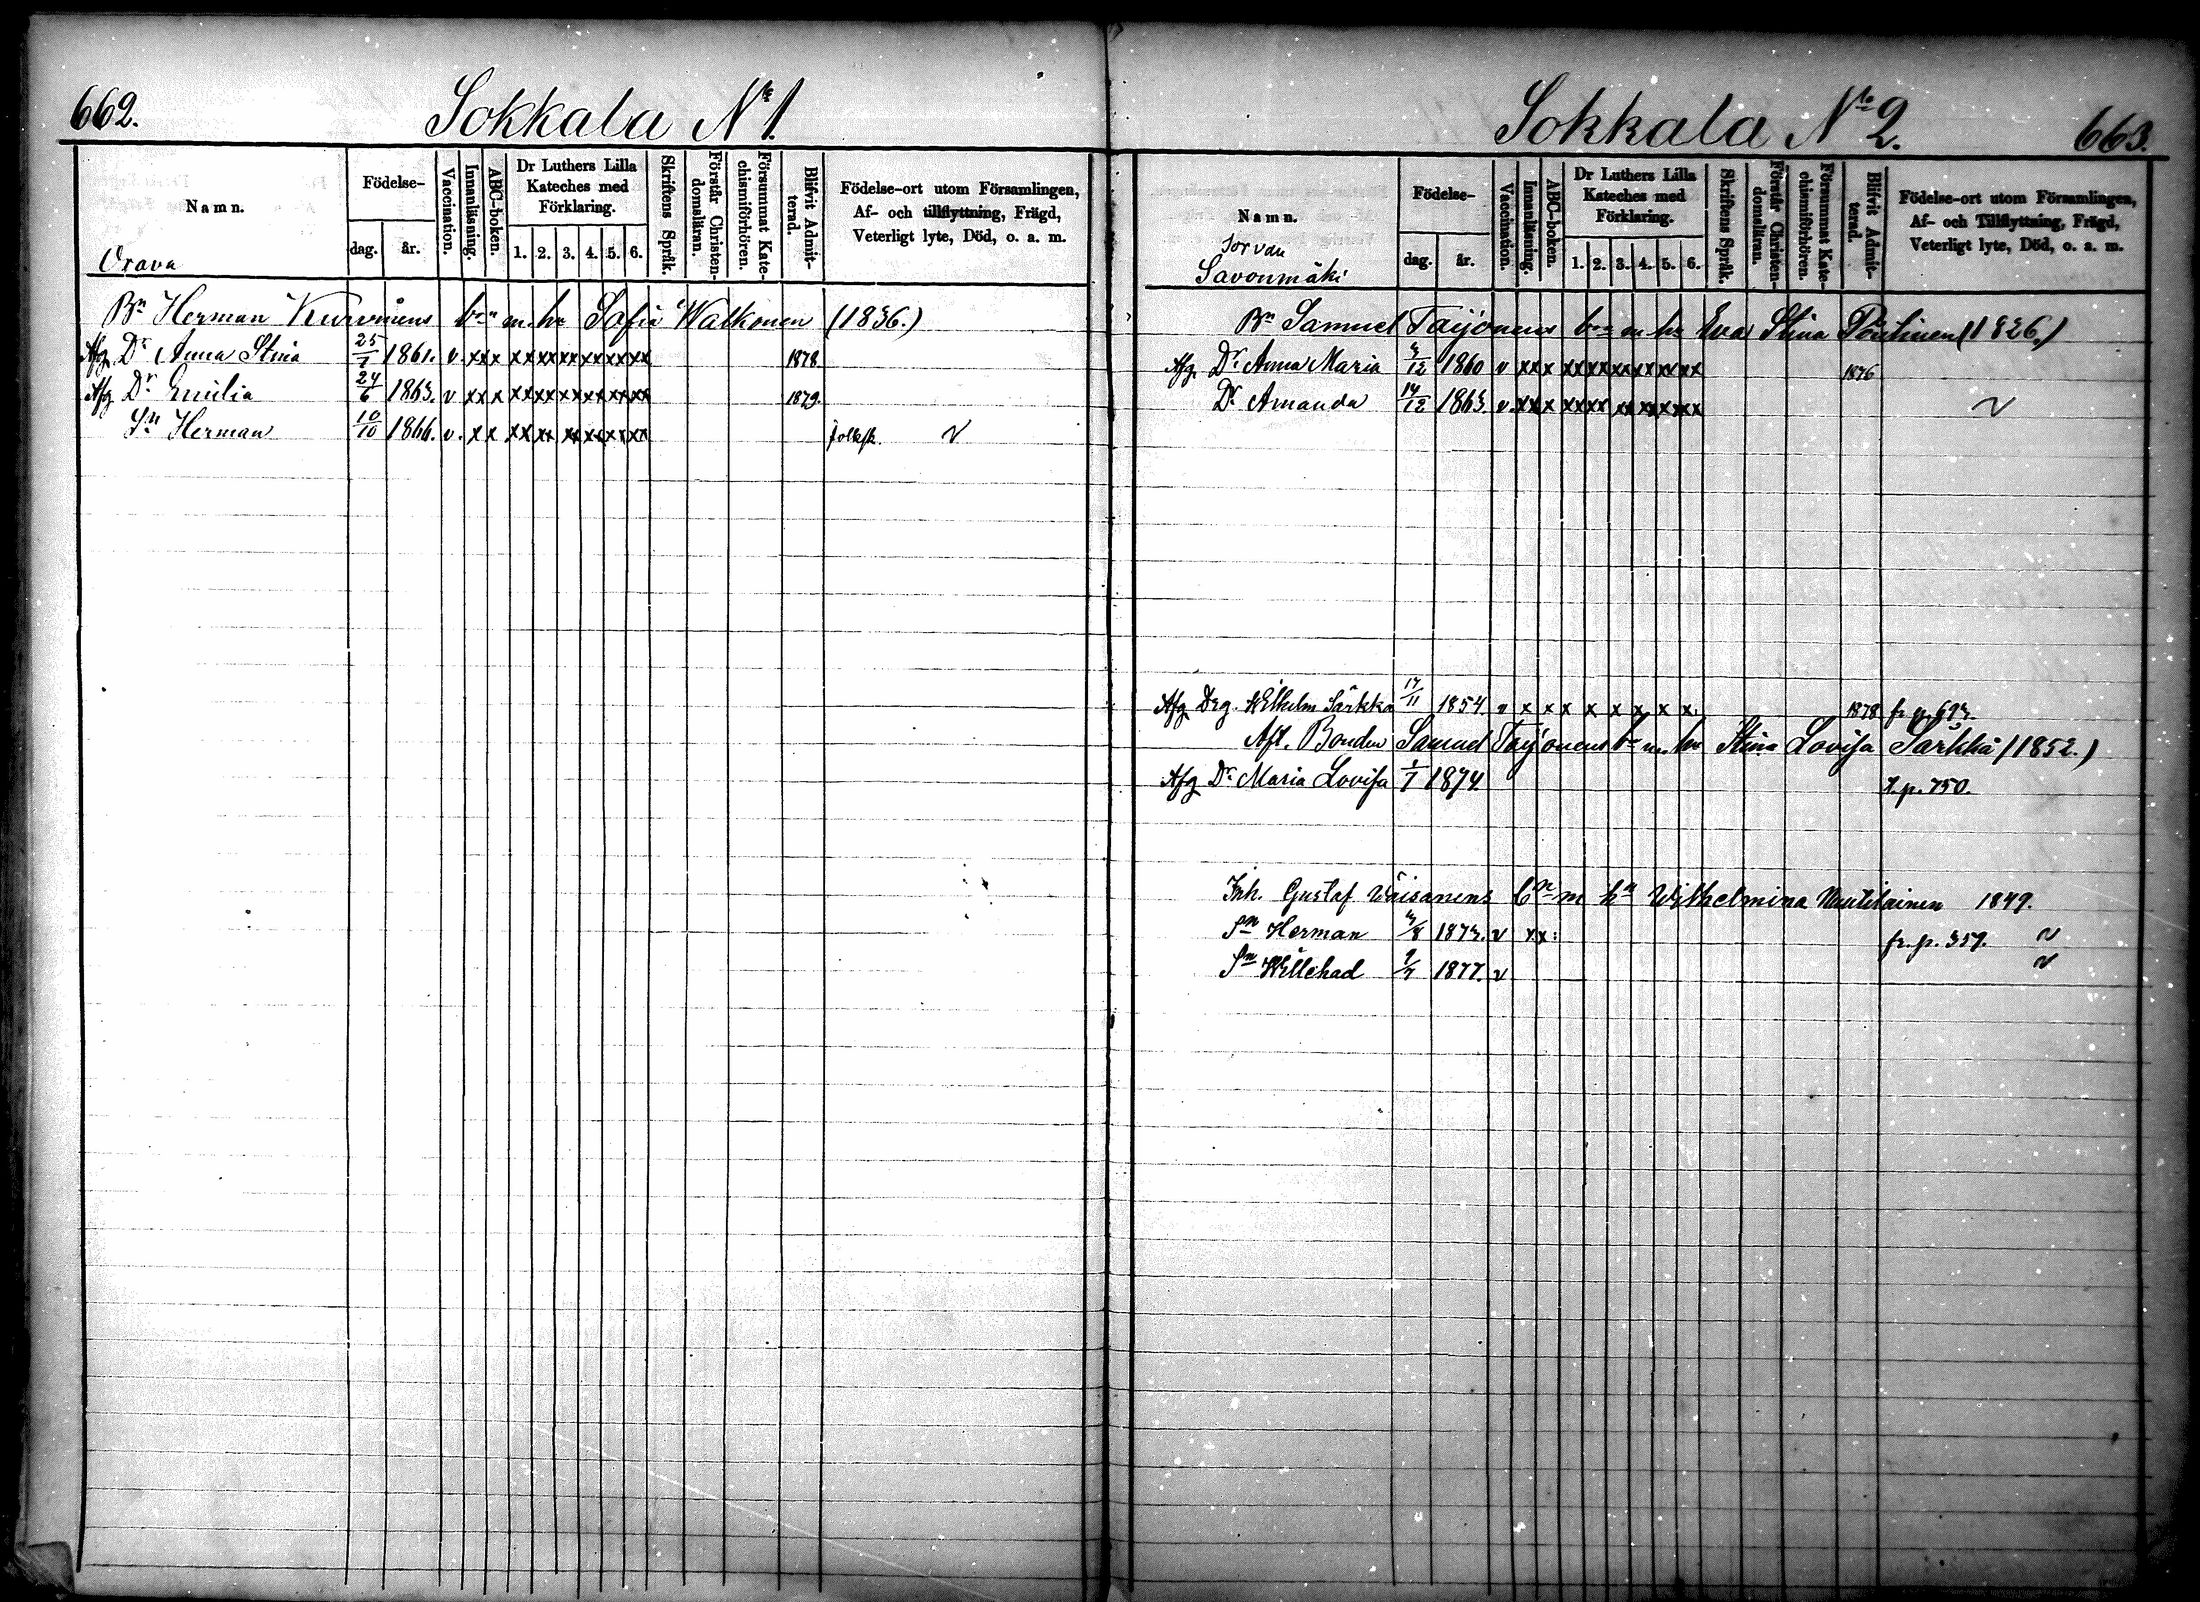 662.
Sokkala No 1.
Namn.
Födelse-
dag.
år.
Vaccination.
Innanläsning.
ABC-boken.
Dr Luthers Lilla Kateches med Förklaring.
1. 2. 3. 4. 5. 6.
Skriftens Språk.
Förstår Christendomsläran.
Försummat Katechismiförhören.
Blifvit Admitterad.
Födelse-ort utom Församlingen,
Af- och tillflyttning, Frägd,
Veterligt lyte, Död, o. a. m.
Orava
Bn Herman Kurvinens bn m. hu Sofia Walkonen (1836.)
Afg Dr Anna Stina 25/7 1861. v. xxx xxxxxxxxxxxx 1878
Afg Dr Emilia 24/6 1863. v xxx xxxxxxxxxxxx 1879.
Sn Herman 10/10 1866. v. xx xxxxxxxxxxxx folksk. v
Sokkala No 2.
663.
Namn.
Födelse-
dag.
år.
Vaccination.
Innanläsning.
ABC-boken.
Dr Luthers Lilla Kateches med Förklaring.
1. 2. 3. 4. 5. 6.
Skriftens Språk.
Förstår Christendomsläran.
Försummat Katechismiförhören.
Blifvit Admitterad.
Födelse-ort utom Församlingen,
Af- och Tillflyttning, Frägd,
Veterligt lyte, Död, o. a. m.
Sorvau
Savonmäki
Bn Samuel Taijonens bn m hu Eva Stina (1826.)
Afg. Dr. Anna Maria /12 1860 v xxx xxxxxxxxxxxx 1876
Dr. Amanda 14/12 1863. v. xxx xxxxxxxxxxxx v
Afg Drg. Wilhelm Särkkä 17/11 1854. v x x x x x x x x x. 1878 fr. p. 693.
Aft. Bonden Samuel Taijonens bn m. hu Stina Lovisa Särkkä (1852.)
Afg Dr. Maria Lovisa 1/1 1874. t. p. 750.
Inh. Gustaf Wäisänens bn m hu Wilhelmina Nuutilainen 1849.
Sn Herman /8 1873. v xx: fr. p. 357. v
Sn Willehad 9/7 1877. v v